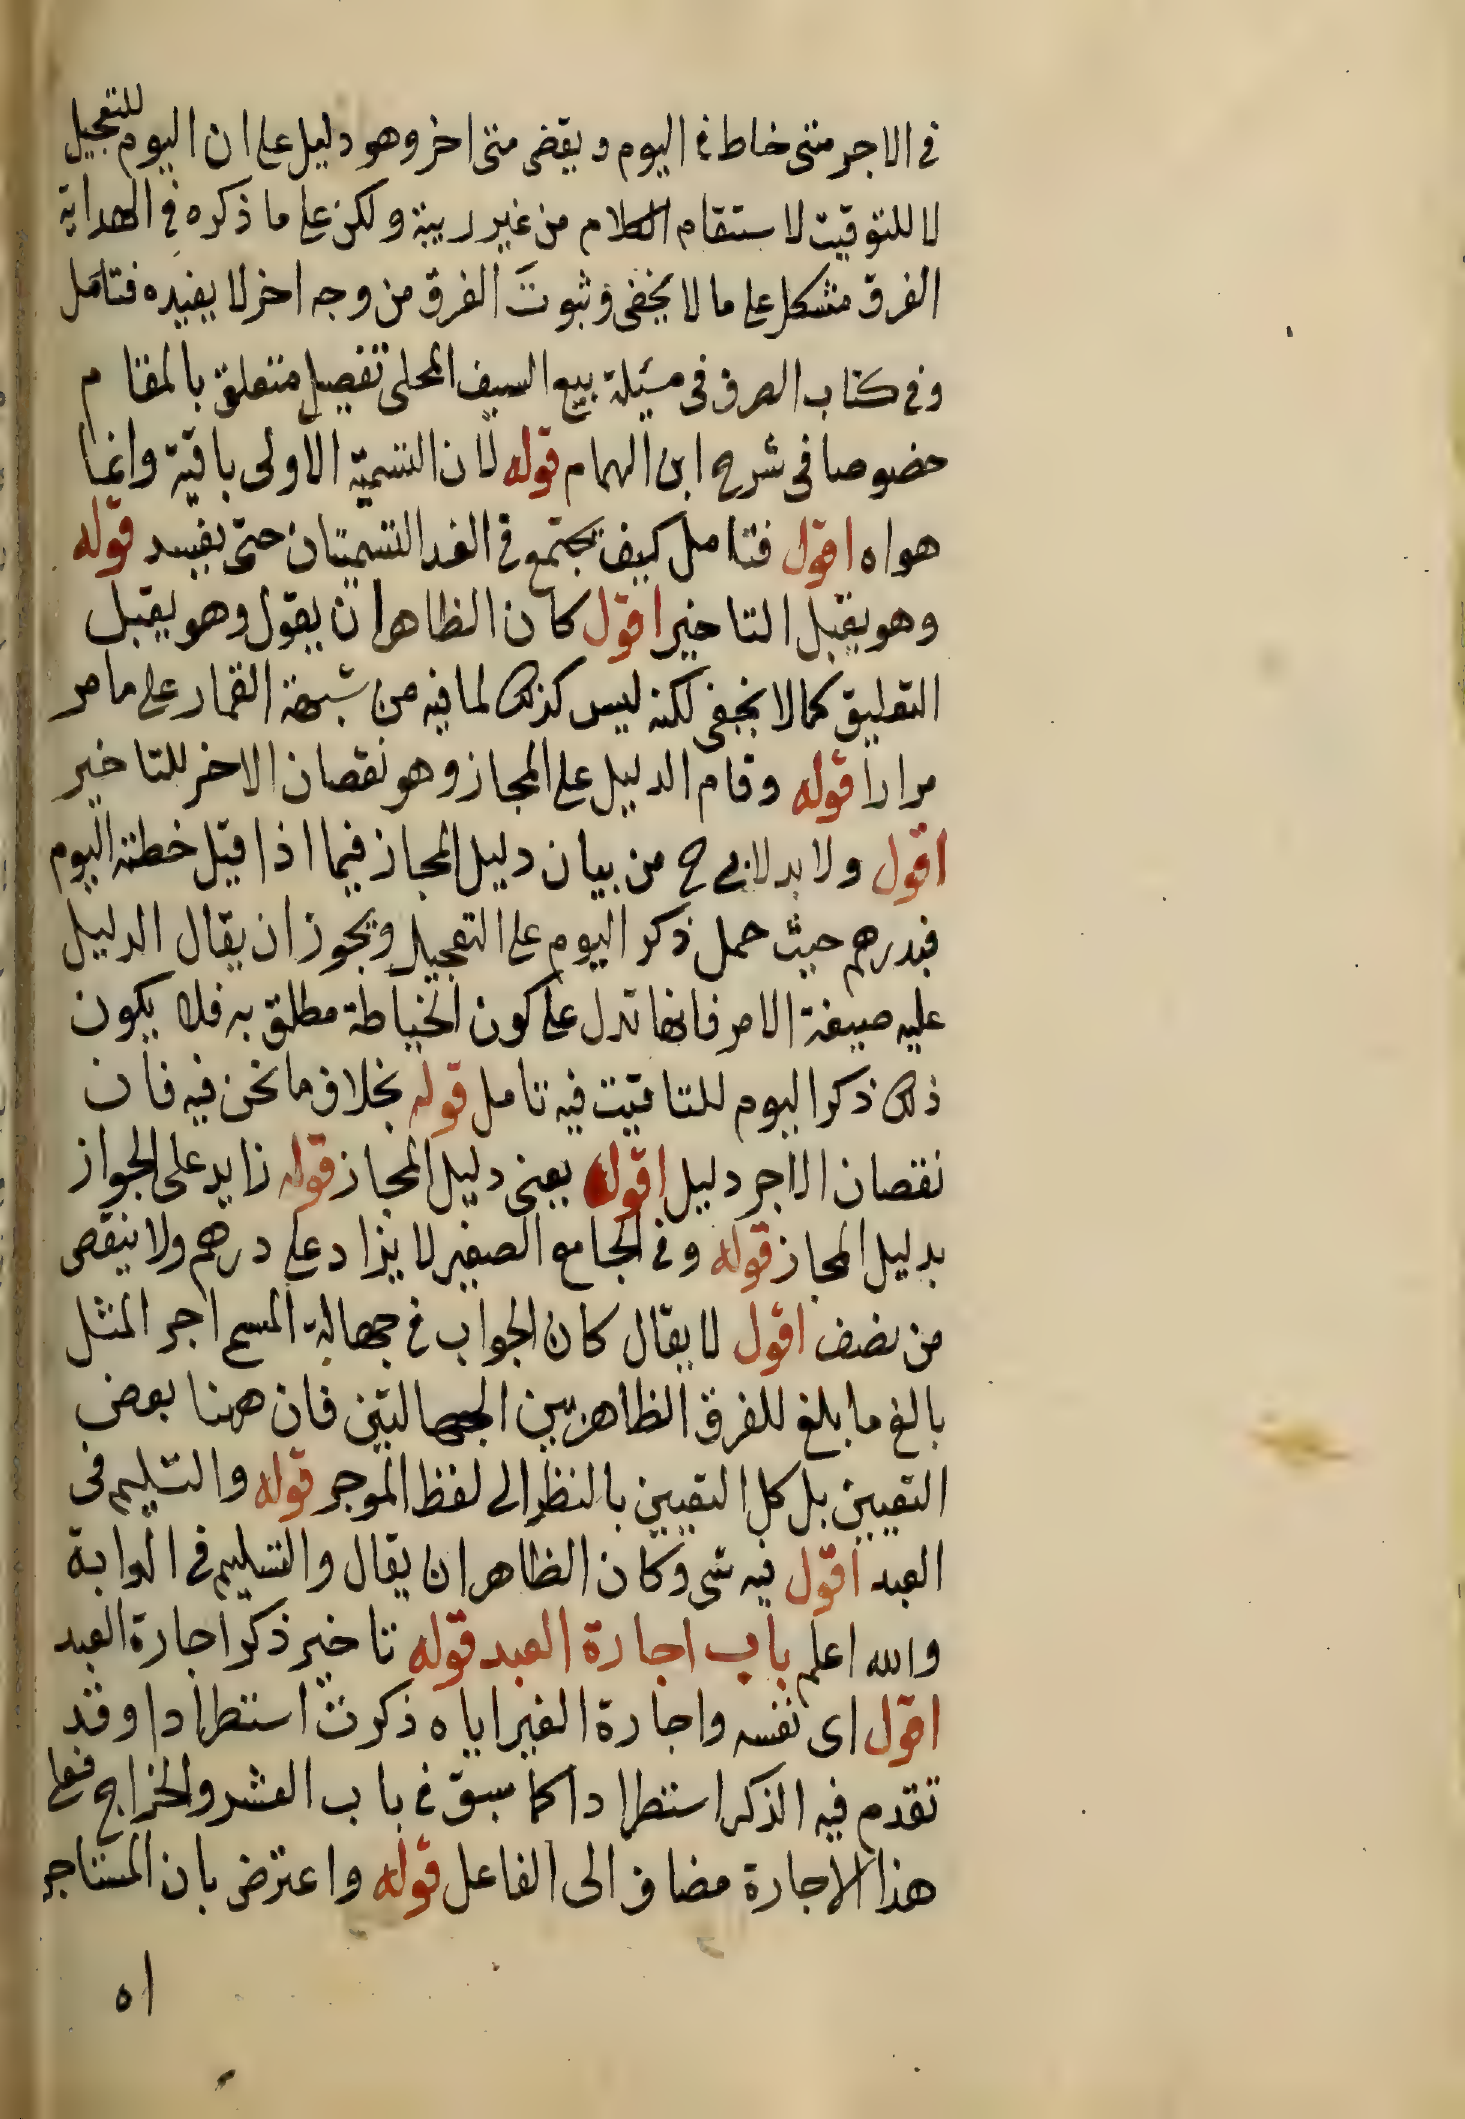 في الاجر متى خاط في اليوم و يقضى متى اخر وهو دليل على ان اليوم للتعجيل
لا للتوقيت لاستقام الكلام من غير ريبة ولكن على ما ذكره في الهداية
الفرق مشكل على ما لا يخفى وثبوت الفرق من وجه اخر لا يفيده فتامل
وفي كتاب الصرف في مسئلة بيع السيف المحلى تفصيل متعلق بالمقام
خصوصا في شرح ابن الهمام قوله لان التسمية الاولى باقية وانما
هواه اقول فتامل كيف تجتمع في الغد التسميتان حتى يفسد قوله
وهو يقبل التاخير اقول كان الظاهر ان يقول وهو يقبل
التعليق كما لا يخفى لكنه ليس كذلك لما فيه من شبهة القمار على ما مر
مرارا قوله وقام الدليل على المجاز وهو نقصان الاخر للتاخير
اقول ولا بد ح من بيان دليل المجاز فيما اذا قيل خطته اليوم
فبدرهم حيث حمل ذكر اليوم على التعجيل ويجوز ان يقال الدليل
عليه صيغة الامر فانها تدل على كون الخياطة مطلق به فلا يكون
ذلك ذكر اليوم للتاقيت فيه تامل قوله بخلاف ما نحن فيه فان
نقصان الاجر دليل اقوله يعنى دليل المجاز قوله زايد على الجواز
بدليل المجاز قوله وفي الجامع الصغير لا يزاد على درهم ولا ينقص
من نصف اقول لا يقال كان الجواب في جهالة المسمى اجر المثل
بالغ ما بلغ للفرق الظاهر بين الجهالتين فان ههنا بعض
التعيين بل كل التعيين بالنظر الى لفظ الموجر قوله والتسليم في
العبد اقول فيه شى وكان الظاهر ان يقال والتسليم في الدابة
والله اعلم باب اجارة العبد قوله تاخير ذكر اجارة العبد
اقول اى نفسه واجارة الغير اياه ذكرت استطرادا وقد
تقدم فيه الذكر استطرادا كما سبق في باب العشر والخراج فعلى
هذا الاجارة مضاف الى الفاعل قوله واعترض بان المستاجر
اه